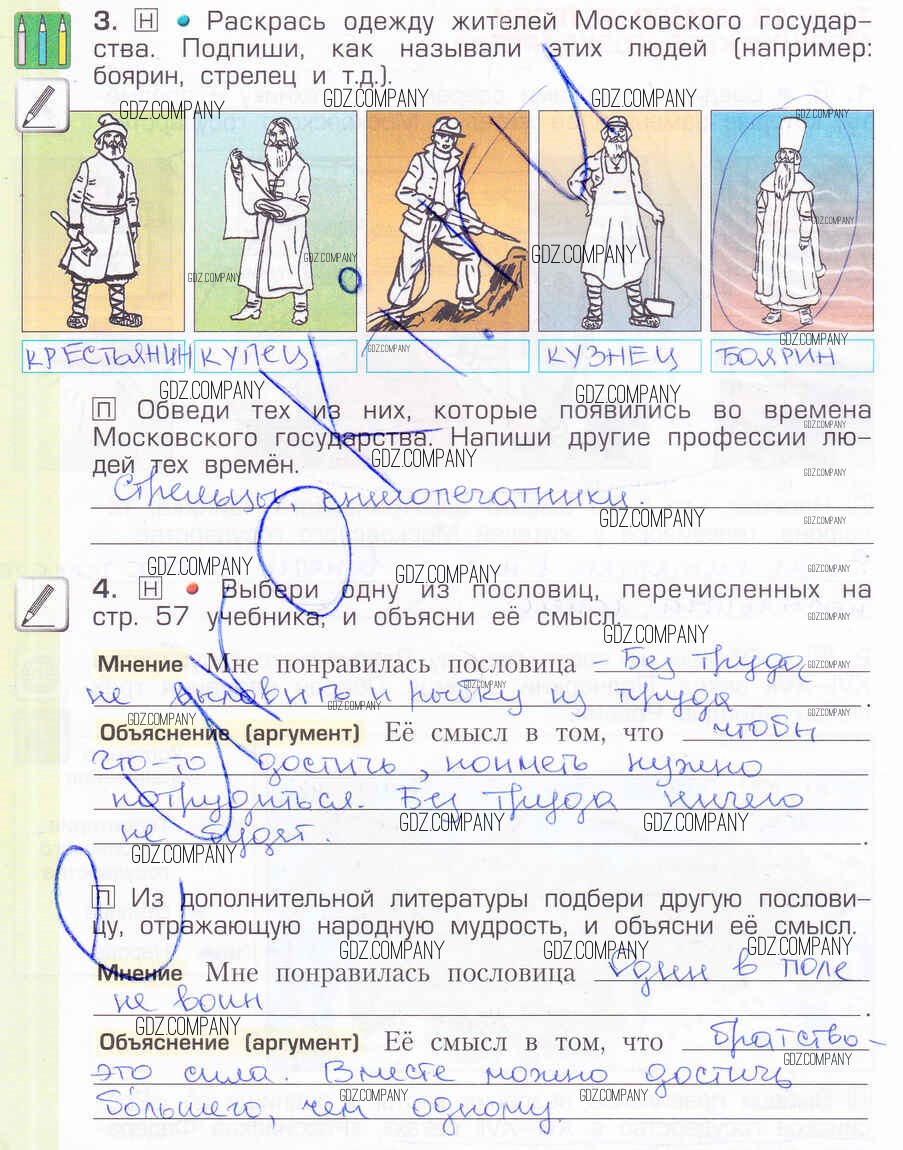 3. Н • Раскрась одежду жителей Московского государ-
ства. Подпиши, как называли этих людей (например:
боярин, стрелец и т.д.).
GDZ.COMPANY GDZ.COMPANY GDZ.COMPANY GDZ.COMPANY
GDZ.COMPANY
GDZ.COMPANY GDZ.COMPANY GDZ.COMPANY
GDZ.COMPANY
КРЕСТЬЯНИН КУПЕЦ GDZ.COMPANY КУЗНЕЦ БОЯРИН
GDZ.COMPANY GDZ.COMPANY
П Обведи тех из них, которые появились во времена
GDZ.COMPANY
Московского государства. Напиши другие профессии лю-
GDZ.COMPANY
дей тех времён.
GDZ.COMPANY
Стрельцы, книгопечатники.
GDZ.COMPANY GDZ.COMPANY
GDZ.COMPANY GDZ.COMPANY GDZ.COMPANY
4. Н • Выбери одну из пословиц, перечисленных на
стр. 57 учебника, и объясни её смысл.
GDZ.COMPANY GDZ.COMPANY
Мнение Мне понравилась пословица – Без труда
GDZ.COMPANY GDZ.COMPANY
не выловить и рыбку из пруда.
GDZ.COMPANY GDZ.COMPANY GDZ.COMPANY
Объяснение (аргумент) Её смысл в том, что чтобы
что-то достичь, поиметь нужно
потрудиться. Без труда ничего
GDZ.COMPANY GDZ.COMPANY
не будет.
GDZ.COMPANY
П Из дополнительной литературы подбери другую послови-
цу, отражающую народную мудрость, и объясни её смысл.
GDZ.COMPANY GDZ.COMPANY GDZ.COMPANY
Мнение Мне понравилась пословица Один в поле
не воин.
GDZ.COMPANY
Объяснение (аргумент) Её смысл в том, что братство–
GDZ.COMPANY
это сила. Вместе можно достичь
GDZ.COMPANY GDZ.COMPANY
большего, чем одному.